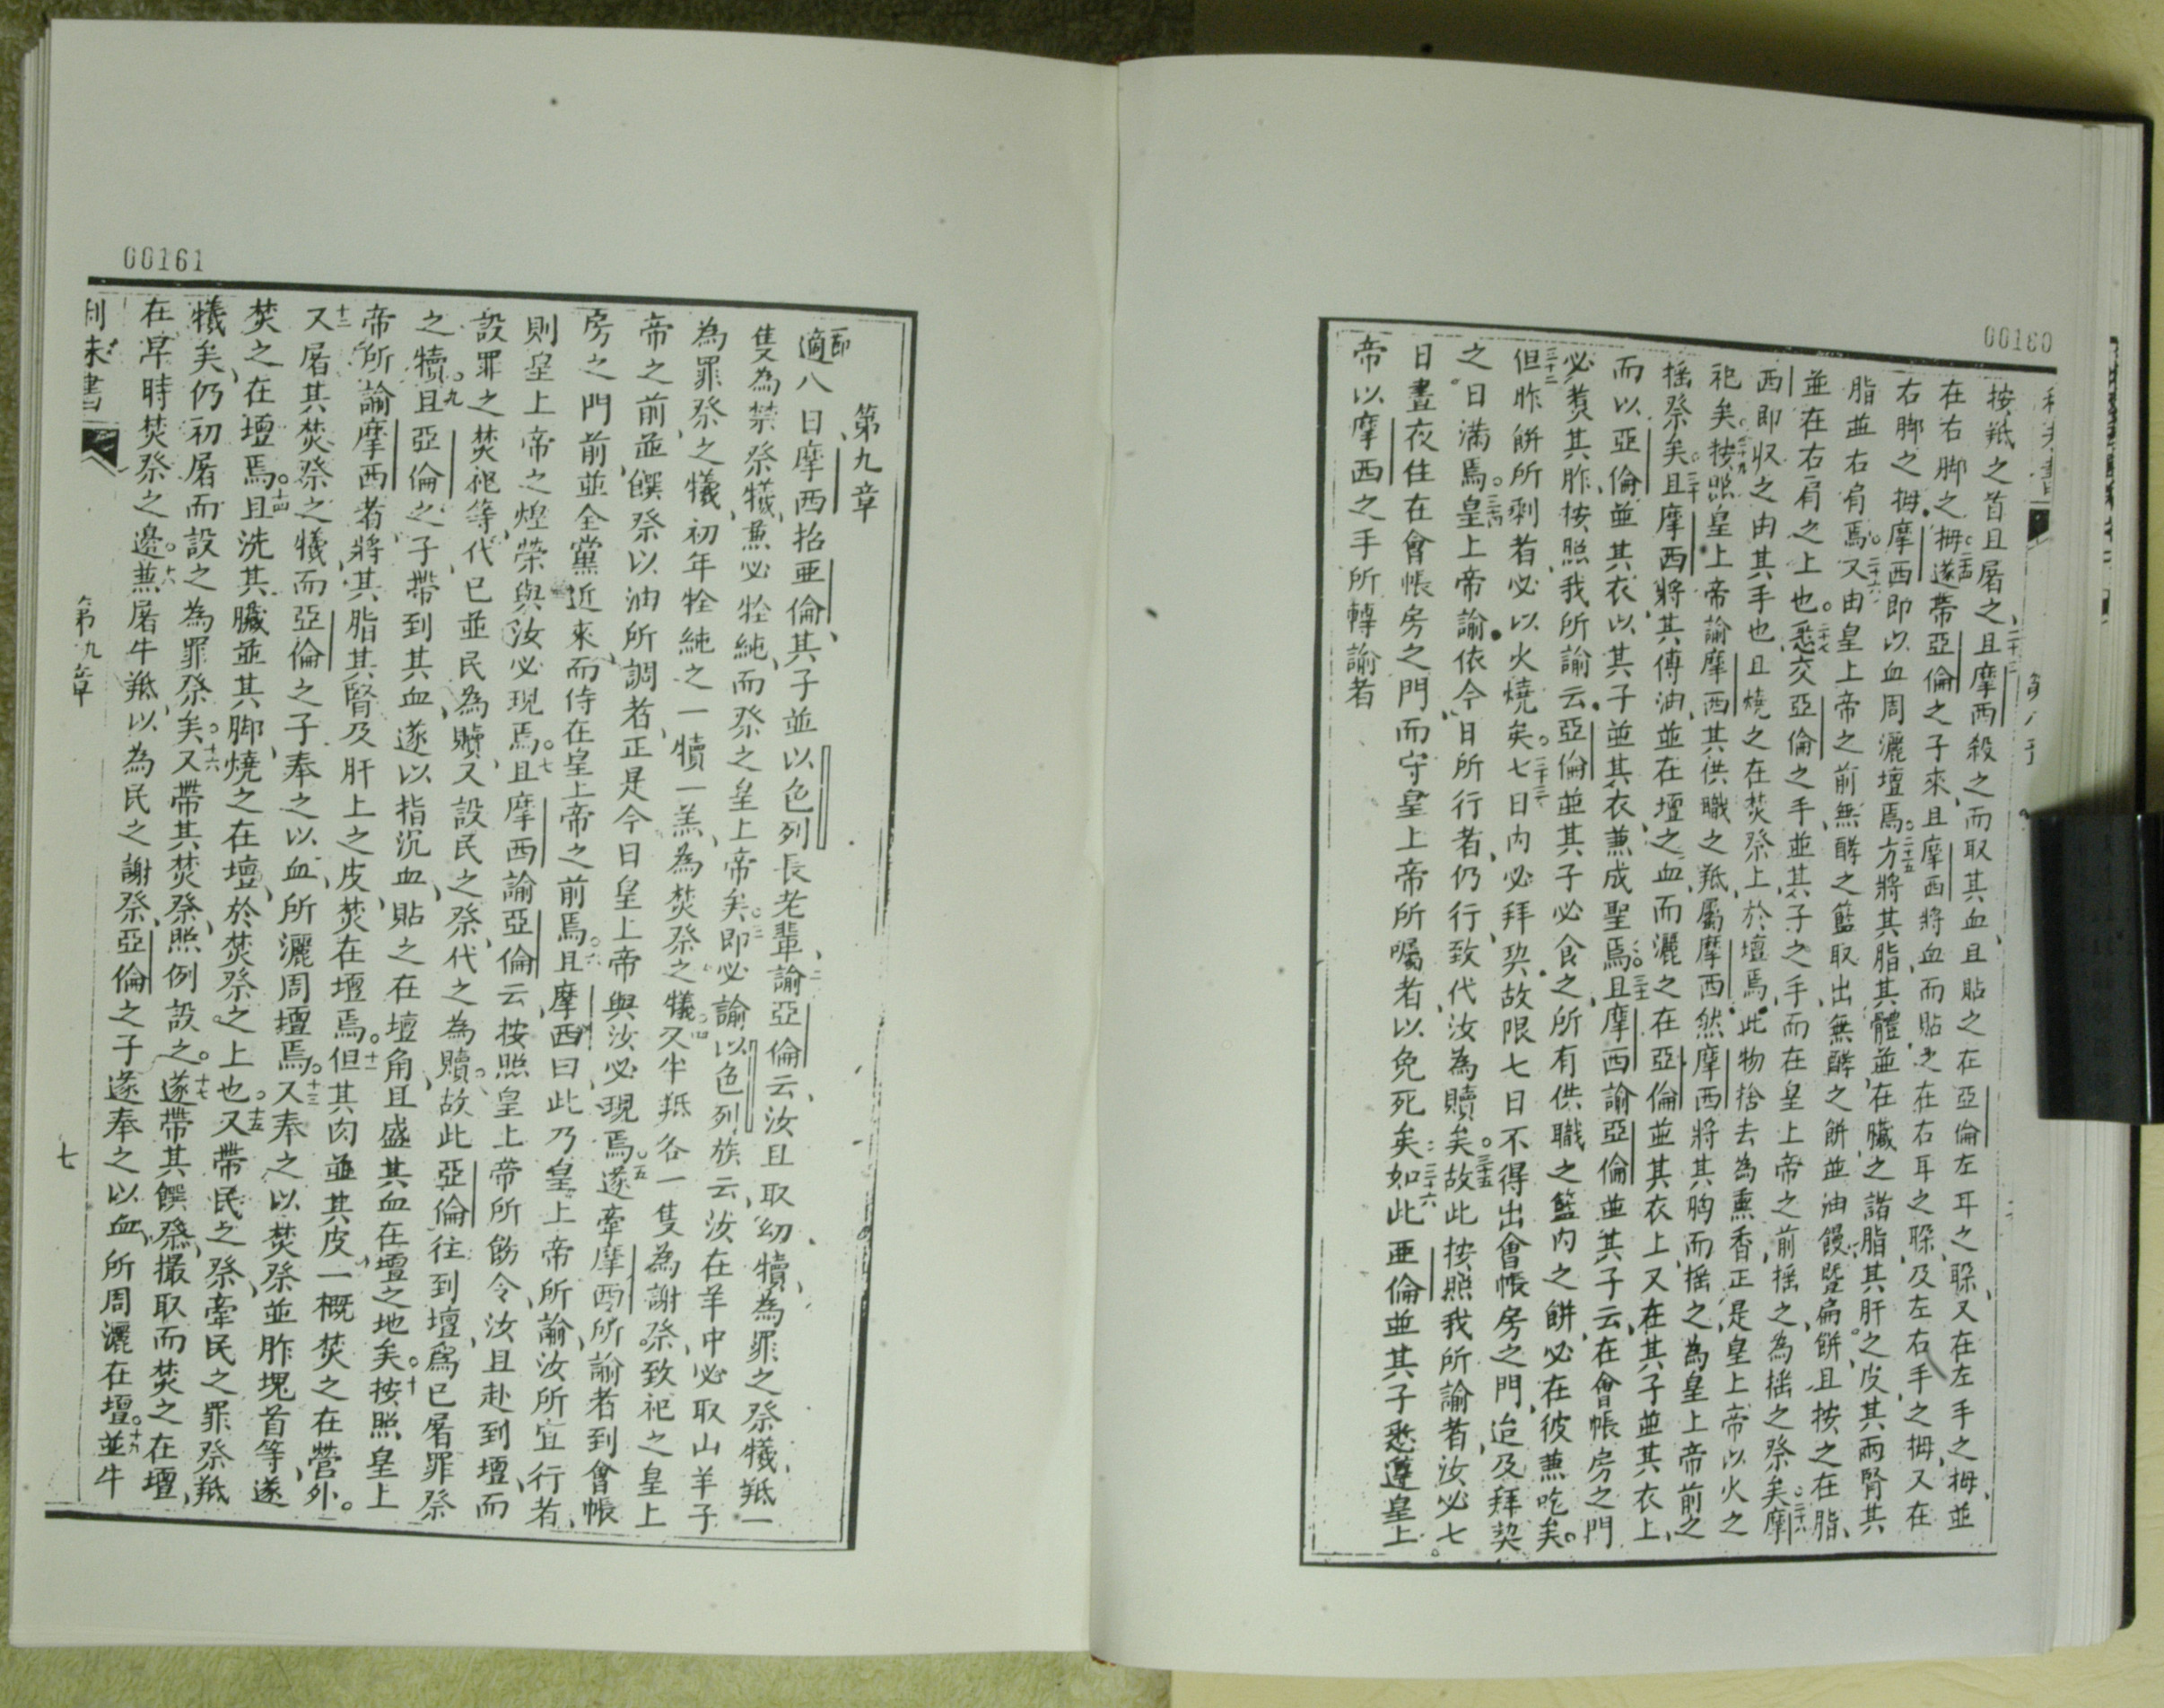 00160
按羝之首且屠之且摩西殺之而取其血且貼之在亞倫左耳之䐔又在左手之拇並
在右脚之拇遂帶亞倫之子來且摩西將血而貼之在右耳之䐔及左右手之拇又在
右脚之拇摩西即以血周灑壇焉方將其脂其體並在臟之諸脂其肝之皮其兩腎其
脂並右肩焉又由皇上帝之前無酵之籃取出無酵之餅並油饅暨扁餅且按之在脂
並在右肩之上也悉交亞倫之手並其子之手而在皇上帝之前搖之為搖之祭矣摩
西即收之由其手也且燒之在焚祭上於壇焉此物捨去為熏香正是皇上帝以火之
祀矣按照皇上帝諭摩西其供職之羝屬摩西然摩西將其胸而搖之為皇上帝前之
搖祭矣且摩西將其傅油並在壇之血而灑之在亞倫並其衣上又在其子並其衣上
而以亞倫並其衣以其子並其衣兼成聖焉且摩西諭亞倫並其子云在會帳房之門
必煑其胙按照我所諭云亞倫並其子必食之所有供職之籃內之餅必在彼兼吃矣
但胙餅所剩者必以火燒矣七日內必拜契故限七日不得出會帳房之門迨及拜契
之日滿焉皇上帝諭依今日所行者仍行致代汝為贖矣故此按照我所諭者汝必七
日晝夜住在會帳房之門而守皇上帝所囑者以免死矣如此亞倫並其子悉遵皇上
帝以摩西之手所轉諭者
00161
第九章
適八日摩西招亞倫其子並以色列長老輩諭亞倫云汝且取幼犢為罪之祭犧羝一
隻為焚祭犧兼必牷純而祭之皇上帝矣即必諭以色列族云汝在羊中必取山羊子
為罪祭之犧初年牷純之一犢一羔為焚祭之犧又牛羝各一隻為謝祭致祀之皇上
帝之前並饌祭以油所調者正是今日皇上帝與汝必現焉遂牽摩西所諭者到會帳
房之門前並全黨近來而侍在皇上帝之前焉且摩西曰此乃皇上帝所諭汝所宜行者
則皇上帝之煌榮與汝必現焉且摩西諭亞倫云按照皇上帝所飭令汝且赴到壇而
設罪之焚祀等代已並民為贖又設民之祭代之為贖故此亞倫往到壇為已屠罪祭
之犢且亞倫之子帶到其血遂以指沉血貼之在壇角且盛其血在壇之地矣按照皇上
帝所諭摩西者將其脂其腎及肝上之皮焚在壇焉但其肉並其皮一概焚之在營外
又屠其焚祭之犧而亞倫之子奉之以血所灑周壇焉又奉之以焚祭並胙塊首等遂
焚之在壇焉且洗其臟並其脚燒之在壇於焚祭之上也又帶民之祭牽民之罪祭羝
犧矣仍初屠而設之為罪祭矣又帶其焚祭照例設之遂帶其饌祭撮取而焚之在壇
在早時焚祭之邊兼屠牛羝以為民之謝祭亞倫之子遂奉之以血所周灑在壇並牛
利未書
第九章
七